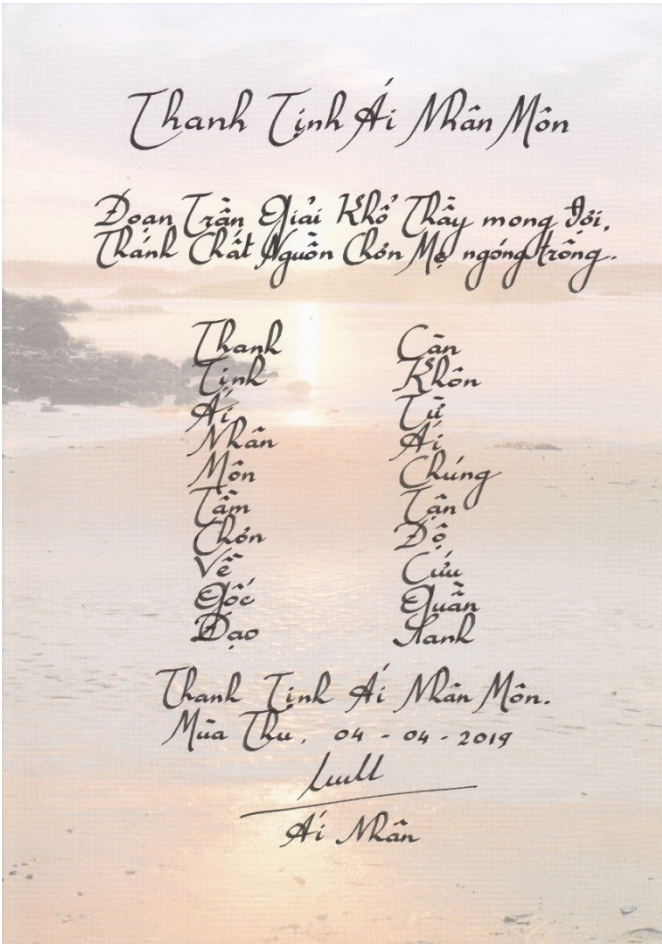 Thanh Tịnh Ái Nhân Môn
Đoạn Trần Giải Khổ Thầy mong đợi,
Thánh Chất Nguồn Chơn Mẹ ngóng trông.
Thanh
Tịnh
Ái
Nhân
Môn
Tầm
Chơn
Về
Gốc
Đạo
Càn
Khôn
Từ
Ái
Chúng
Tận
Độ
Cứu
Quần
Sanh
Thanh Tịnh Ái Nhân Môn.
Mùa Thu, 04 - 04 - 2019
Ái Nhân